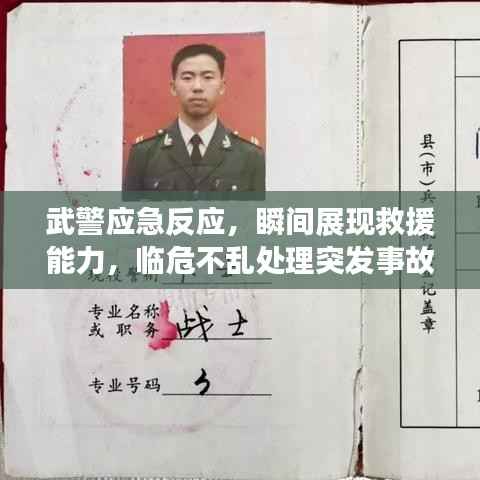 武警应急反应，瞬间展现救援
能力，临危不乱处理突发事故
专业名称
或 职务 战士
专业号码 3
县(市)
记盖章